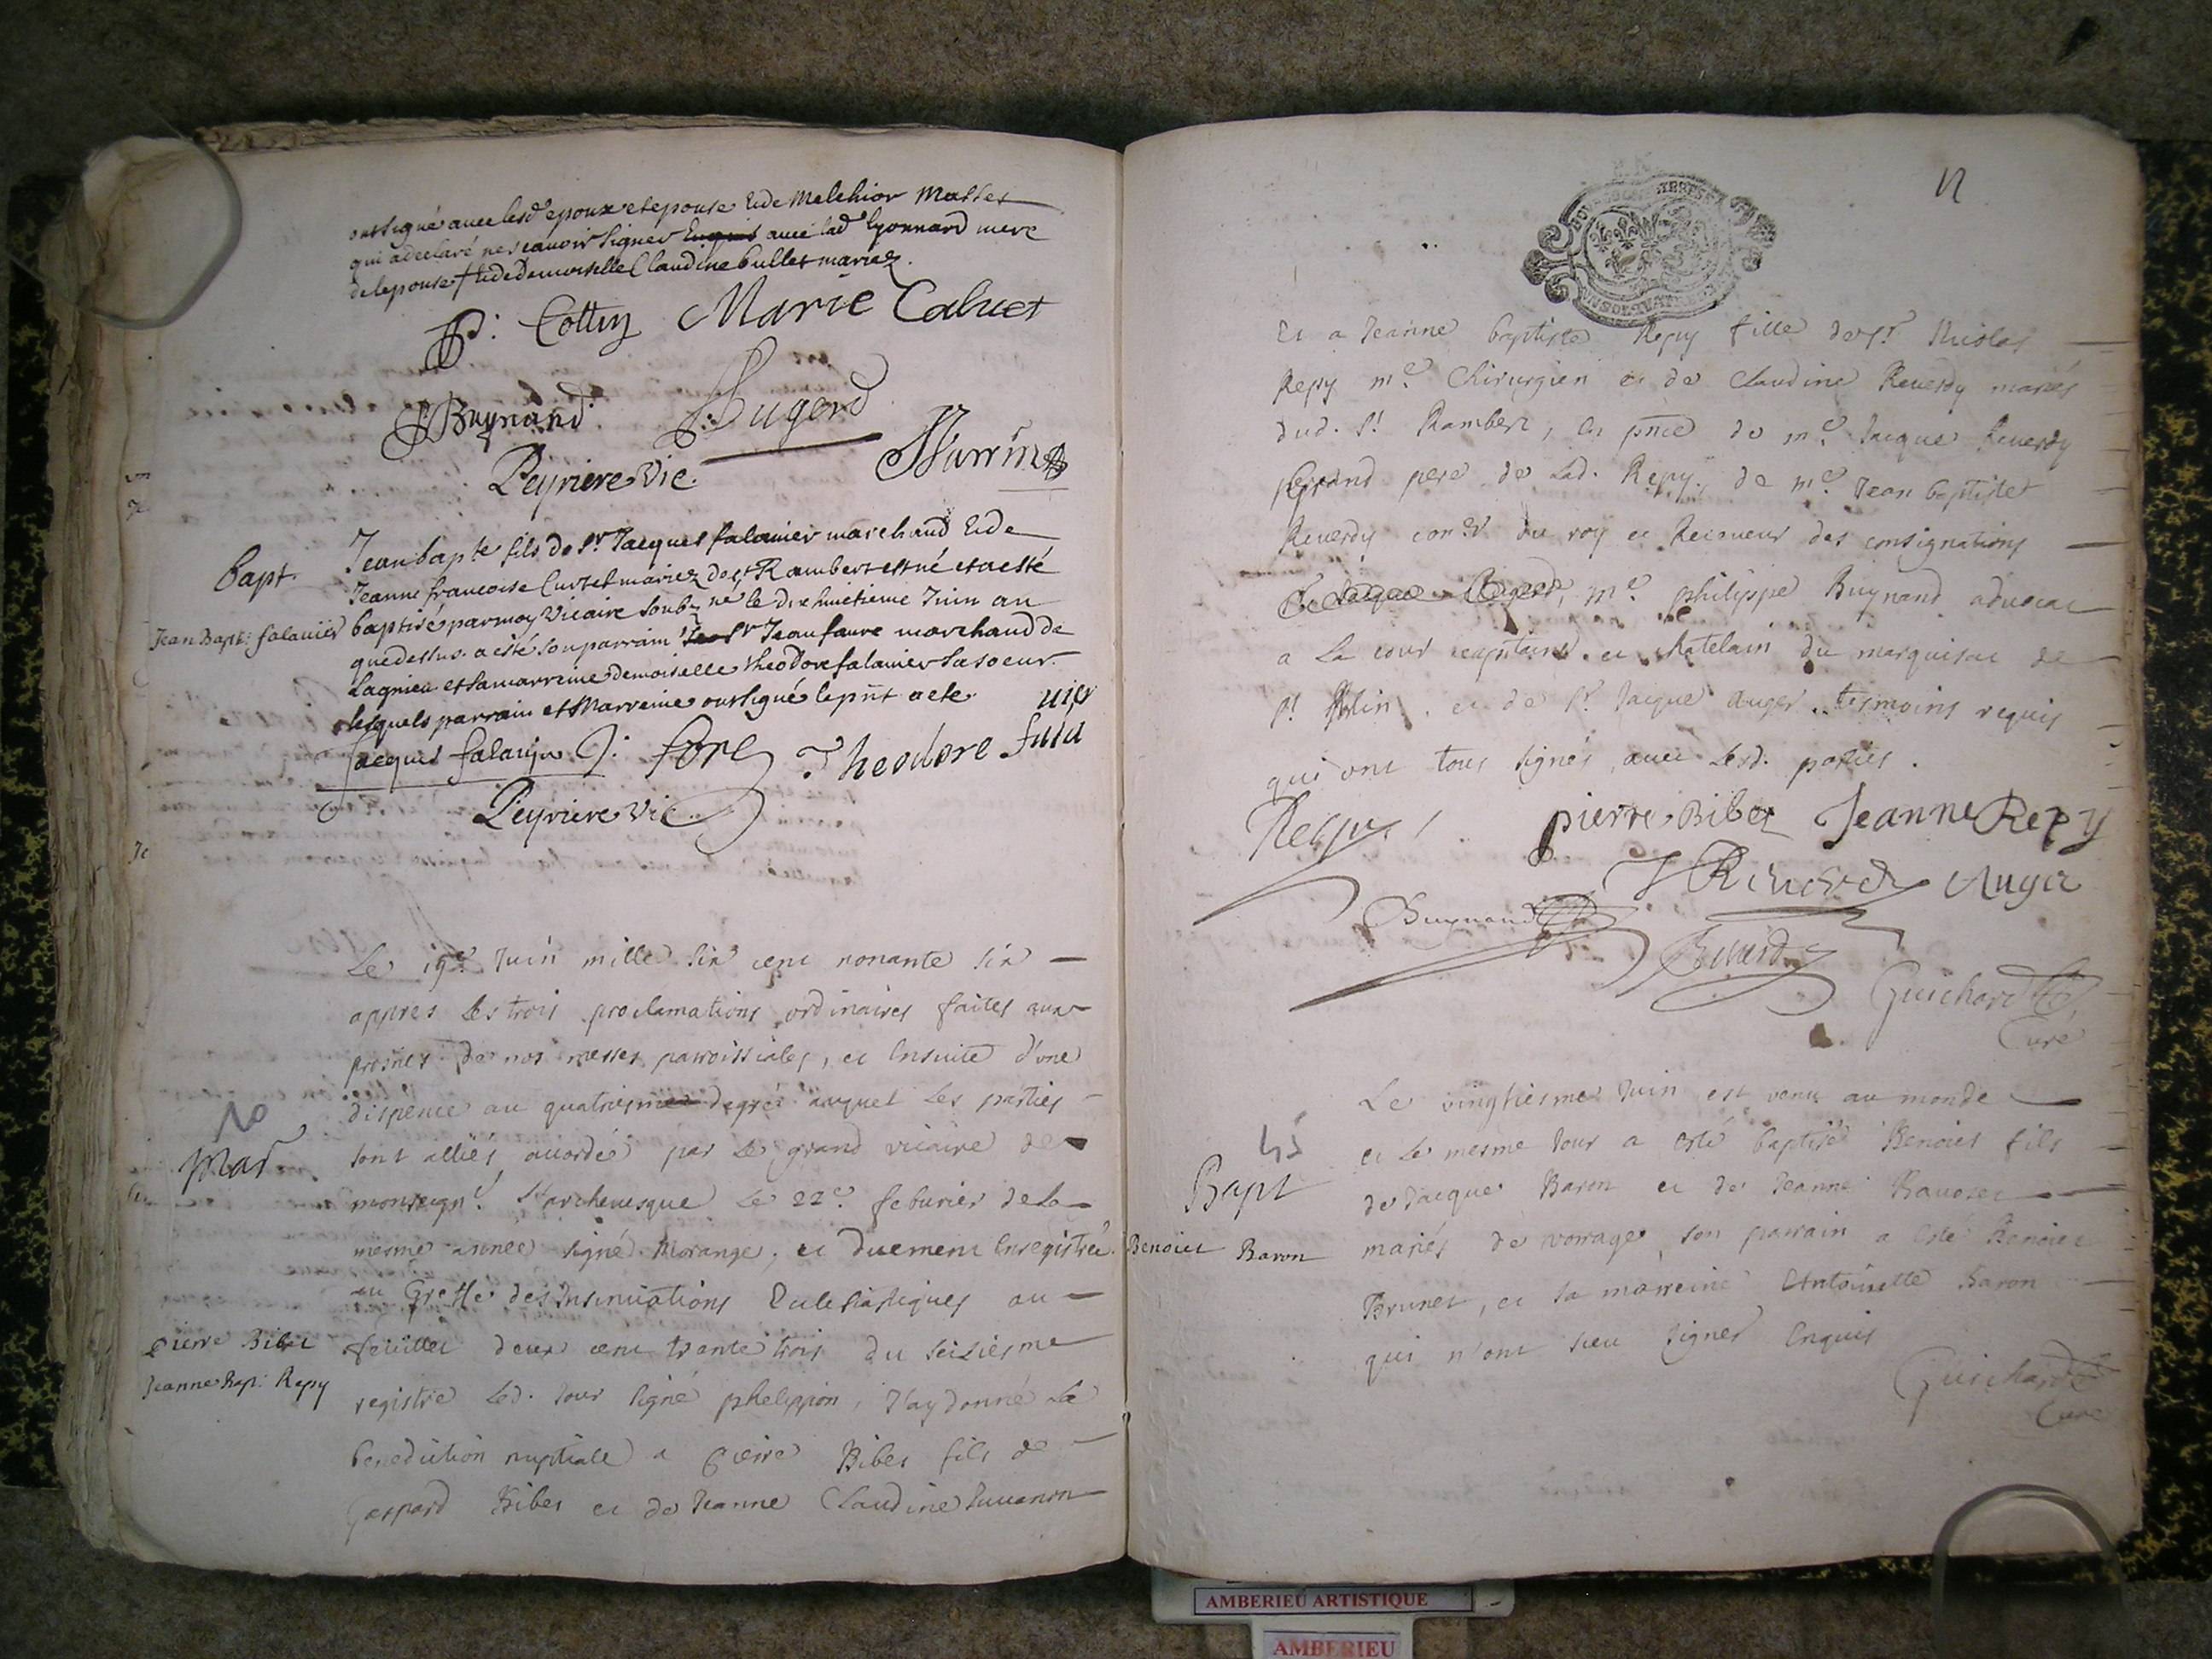 ont signé avec lesd epoux et epouse Et de Melchior Mallet
qui a declaré ne scavoir signer Enquis avec lad lyonnard mere
de lepouse Et de Demoiselle Claudine bullet mariez.
P. Cottin Marie Caluet
Buynand Augerd
Peyriere Vic.
Bapt.
Jean Bapt: falauier
Jean bapte fils de Sr Jacques falauier marchand Et de
Jeanne francoise Curtet mariez de St Rambert est né et a esté
baptisé par moy Vicaire soubz né le dix huictieme Juin an
que dessus. a esté son parrain Sr Jean faure marchand de
Lagnieu et sa marreine demoiselle theodore falauier sa soeur.
lesquels parrain et Marreine ont signé le pnt acte.
Jacques falauier J: fore Theodore fala
uier
Peyriere Vic
10
Mar
Pierre Bibet
Jeanne Bap: Repy
Le 19e Juin mille six cent nonante six
appres les trois proclamations ordinaires faites aux
prosnes de nos messes parroissiales, et Ensuite d'une
dispence au quatriesme degré auquel les parties
sont alliés accordée par le grand vicaire de
monseignr. L'archeuesque le 22e. feburier de la
mesme année signé Morange, et duement Enregistrée
au Greffe des Insinuations Eclesiastiques au
feuillet deux cent trante trois du seiziesme
registre led. Jour signé phelippon, J'ay donné la
benediction nuptiale a Pierre Bibet fils de
Gaspard Bibet et de Jeanne Claudine Juuanon
12
Et a Jeanne baptiste Repy fille de Sr. Nicolas
Repy me. Chirurgien et de Claudine Reuerdy mariés
dud. St. Rambert, En pnce de me. Jacque Reuerdy
grand pere de lad. Repy, de me. Jean baptiste
Reuerdy coner du roy et Receueur des consignations
me. philippe Buynand aduocat
a la cour capitaine et chatelain du marquisat de
St. , et de Sr. Jacque Auger tesmoins requis
qui ont tous signés auec lesd. parties.
Repy pierre Bibet Jeanne Repy
J Reuerdy Auger
Buynand Reuerdy
Guichard
Curé
45
Bapt
Benoict Baron
Le vingtiesme Juin est venu au monde
et le mesme Jour a esté baptisé Benoict fils
de Jacque Baron et de Jeanne Rauoret
mariés de vorrage, son parrain a esté Benoict
Brunet, et sa marreine Antoinette Baron
qui n'ont sceu signer Enquis
Guichard
Curé
AMBERIEU ARTISTIQUE
AMBERIEU